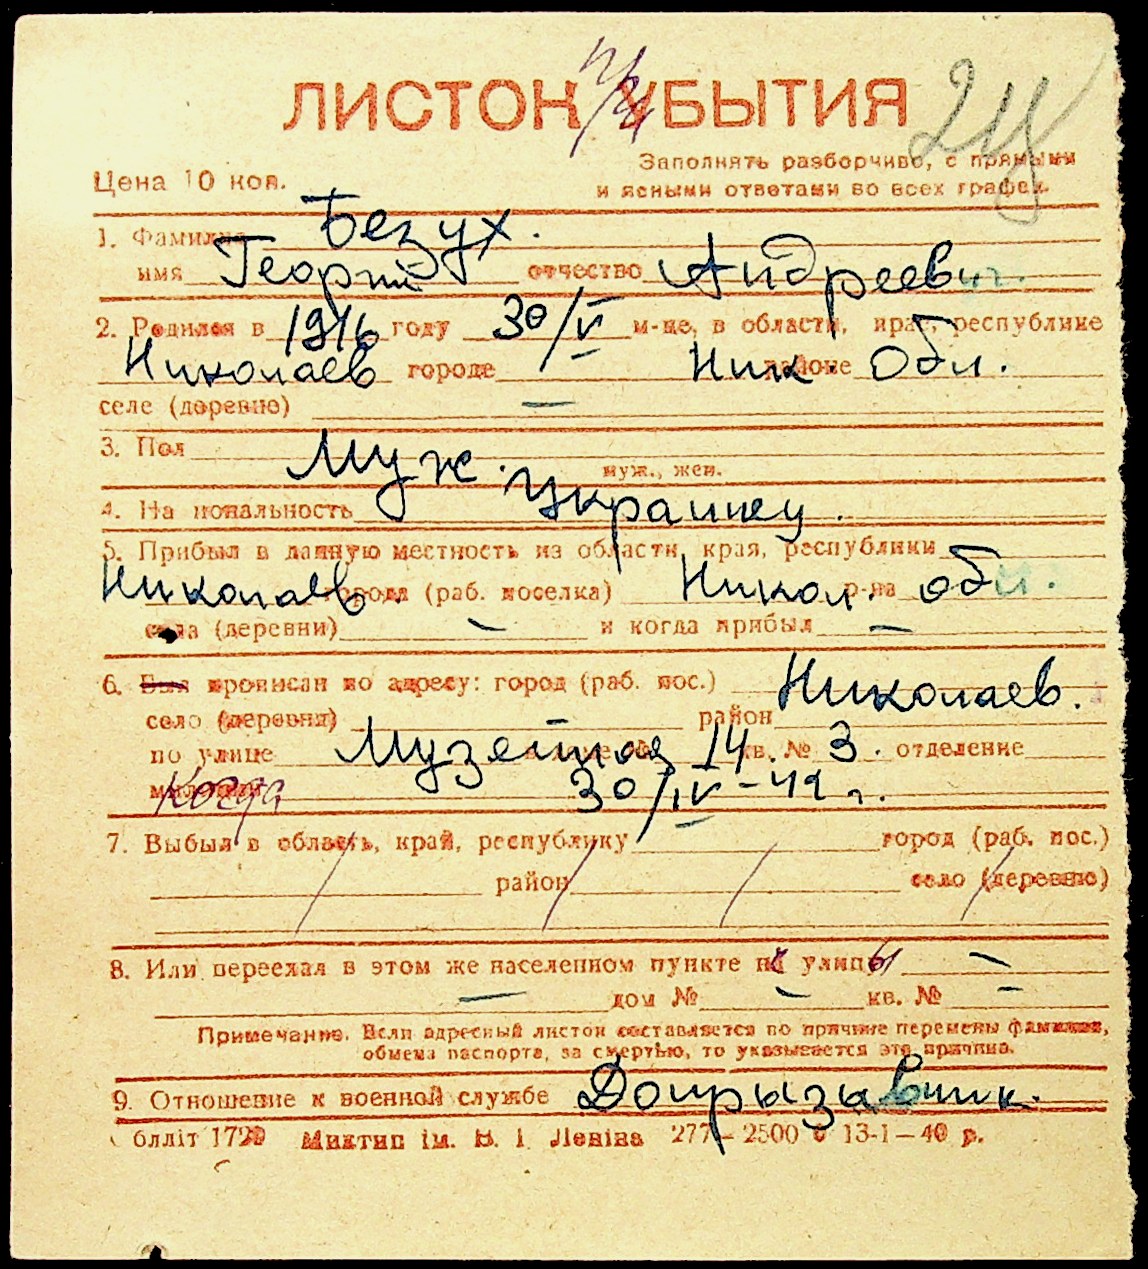 ЛИСТОК УБЫТИЯ
Заполнять разборчиво, с прямыми
Цена 10 коп.
и ясными ответами во всех графах.
1. Фамилия Безух.
имя Георгий отчество Андреевич.
2. Родился в 1916 году 30/V м-це, в области, крае, республике
Николаев городе Ник. районе Обл.
селе (деревне) —
3. Пол Муж. муж., жен.
4. Национальность Украинец.
5. Прибыл в данную местность из области, края, республики
Николаев. города (раб. поселка) Никол. р-на обл.
села (деревни) — и когда прибыл —
6. Был прописан по адресу: город (раб. пос.) Николаев.
село (деревня) район
по улице Музейная 14 кв. № 3. отделение
милиции Когда 30/IV-41 г.
7. Выбыл в область, край, республику город (раб. пос.)
район село (деревню)
8. Или переехал в этом же населенном пункте на улицы —
— дом № — кв. № —
Примечание. Если адресный листок составляется по причине перемены фамилии,
обмена паспорта, за смертью, то указывается эта причина.
9. Отношение к военной службе Допризывник.
обліт 1729 Миктип ім. В. І. Леніна 277 — 2500 13-1—40 р.